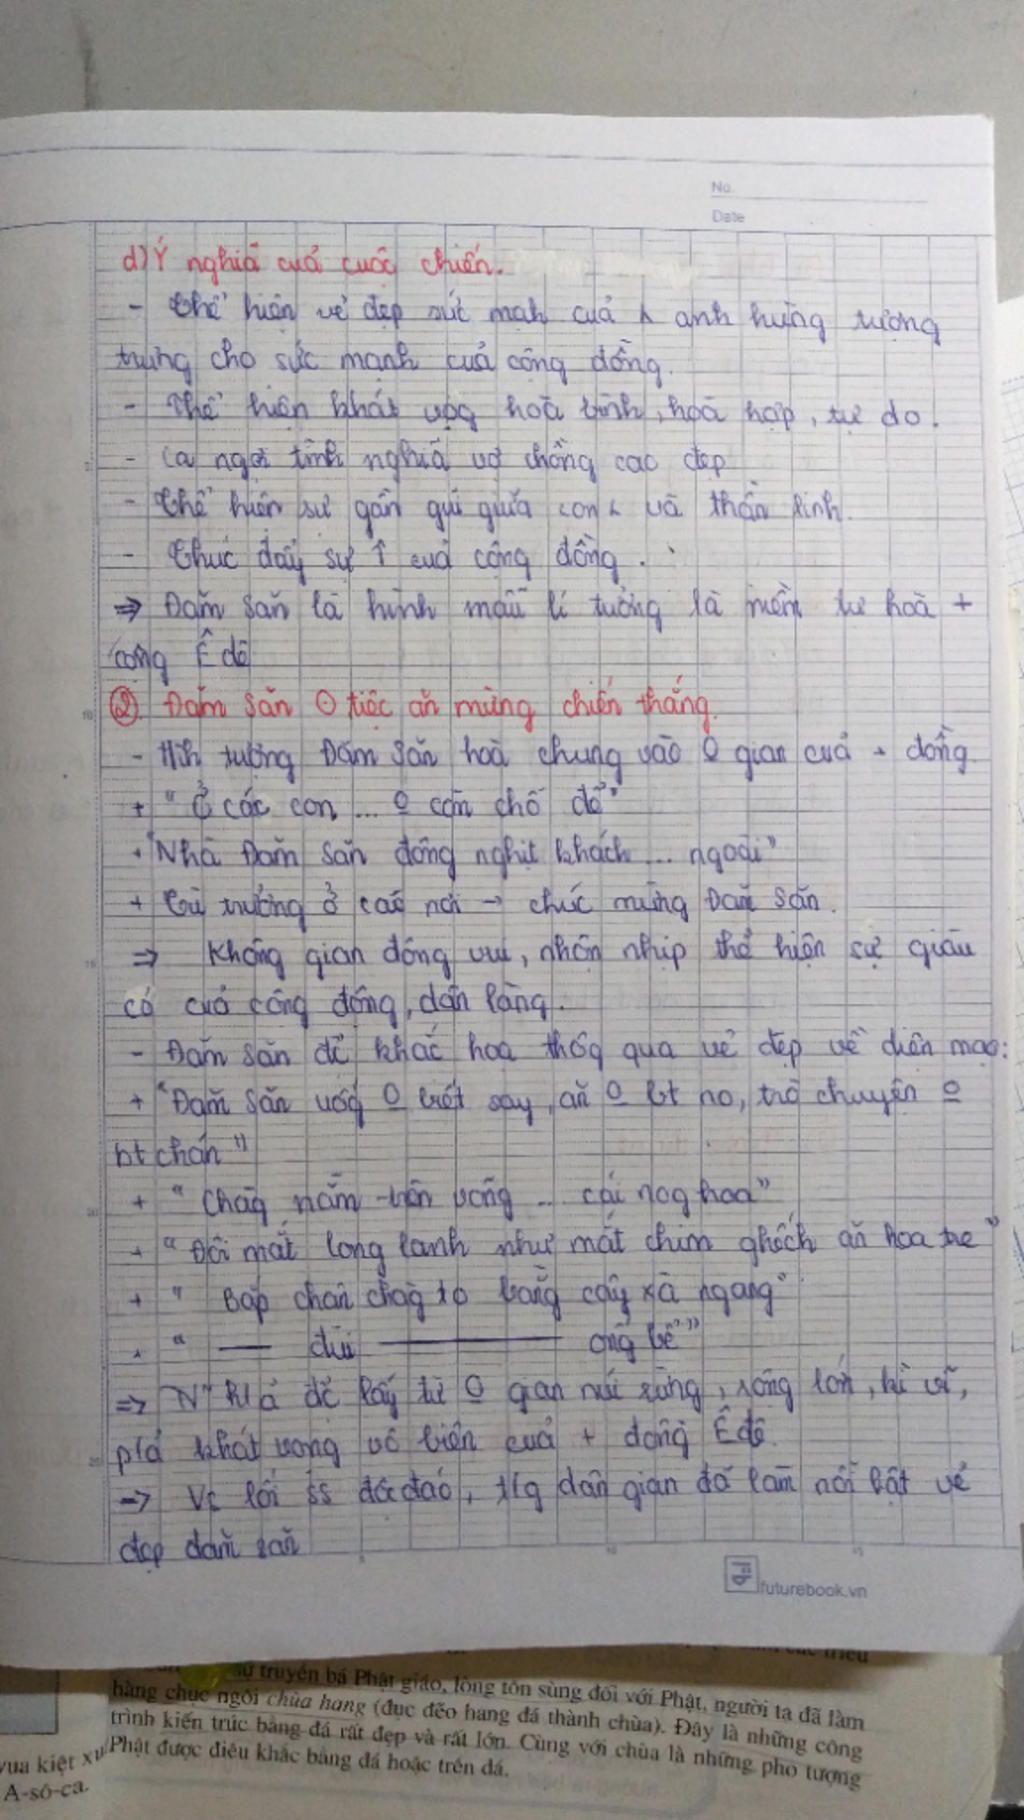 No.
Date
d) Ý nghĩa của cuộc chiến.
- Thể hiện vẻ đẹp sức mạnh của anh hùng tượng
trưng cho sức mạnh của cộng đồng.
- Thể hiện khát vọg hoà bình, hoà hợp, tự do.
- Ca ngợi tình nghĩa vợ chồng cao đẹp
- Thể hiện sự gần gũi giữa con và thần linh.
- Thúc đẩy sự ↑ của cộng đồng.
⇒ Đăm Săn là hình mẫu lí tưởng là niềm tự hoà +
cộng Ê đê
② Đăm Săn tiệc ăn mừng chiến thắng.
- Hìh tượng Đăm Săn hoà chung vào gian của + đồng
+ "Ở các con ... O còn chỗ để"
+ "Nhà Đăm Săn đông nghịt khách ... ngoài"
+ Tù trưởng ở các nơi → chúc mừng Đăm Săn.
⇒ Không gian đông vui, nhộn nhịp thể hiện sự giàu
có của cộng đồng, dân làng.
- Đăm Săn đc khắc hoạ thôg qua vẻ đẹp về diện mạo:
+ "Đăm Săn uốg O biết say, ăn O bt no, trò chuyện O
bt chán"
+ "Chàg nằm trên võng ... cái nog hoa"
+ "Đôi mắt long lanh như mắt chim ghếch ăn hoa tre"
+ "Bắp chân chàg to bằng cây xà ngang"
+ " — đùi — ống bễ"
⇒ đc lấy từ O gian núi rừng, rộng lớn, kì vĩ,
p/á khát vọng vô biên của + đồng Ê đê.
→ Vs lối ss độc đáo, t/g dân gian đã làm nổi bật vẻ
đẹp đăm săn
futurebook.vn
sự truyền bá Phật giáo, lòng tôn sùng đối với Phật, người ta đã làm
hàng chục ngôi chùa hang (đục đẽo hang đá thành chùa). Đây là những công
trình kiến trúc bằng đá rất đẹp và rất lớn. Cùng với chùa là những pho tượng
Phật được điêu khắc bằng đá hoặc trên đá.
vua kiệt xu
A-sô-ca.